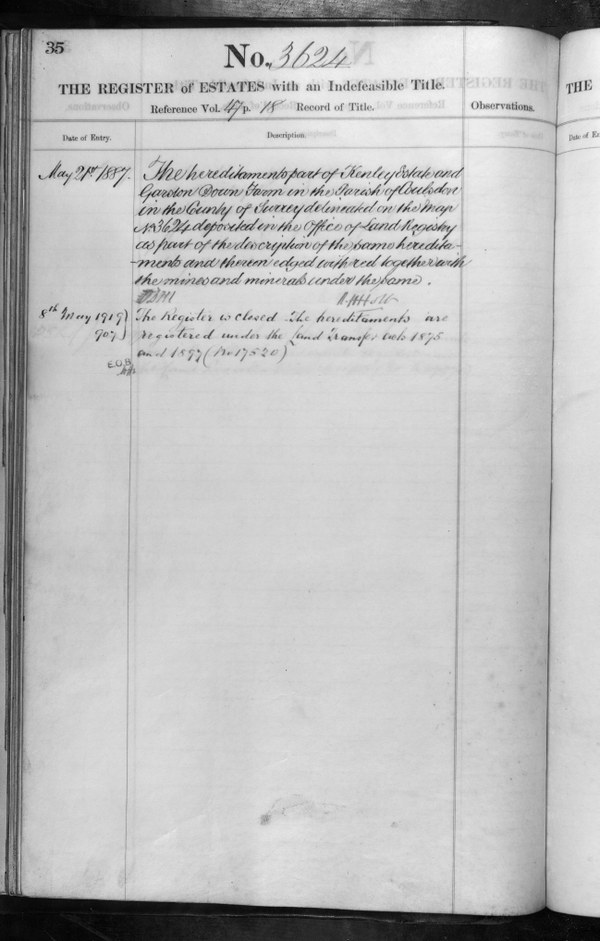 35
No. 3624
THE REGISTER of ESTATES with an Indefeasible Title.
Reference Vol. 47 p. 18 Record of Title.
Observations.
Date of Entry.
Description.
May 21st 1887.
The hereditaments part of Kenley Estate and
Garston Down Farm in the Parish of Coulsdon
in the County of Surrey delineated on the map
No 3624 deposited in the Office of Land Registry
as part of the description of the same heredita-
-ments and thereon edged with red together with
the mines and minerals under the same.
8th May 1919
The Register is closed. The hereditaments are
registered under the Land Transfer Acts 1875
and 1897 (No 17520)
E.O.B.
THE
Date of En